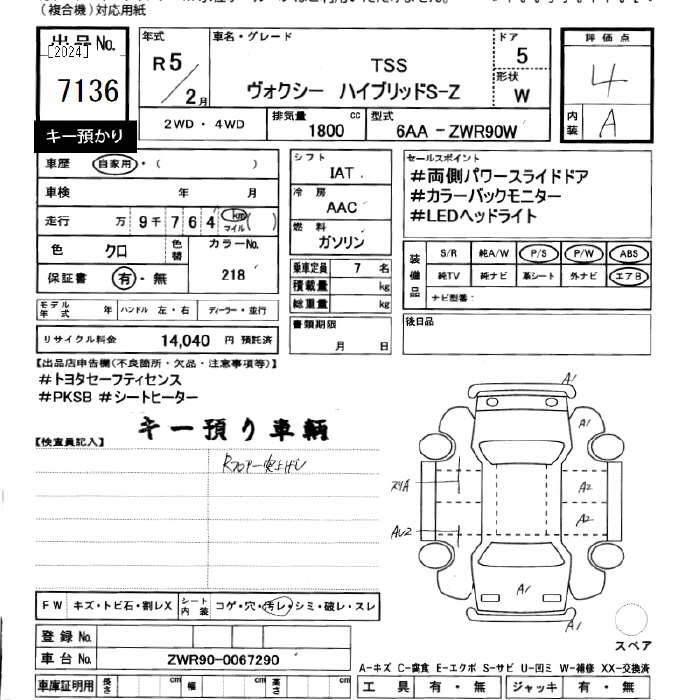 (複合機)対応用紙
出品No.
[2024]
7136
キー預かり
年式
R5/2月
車名・グレード
TSS
ヴォクシー ハイブリッドS-Z
ドア
5
形状
W
評価点
4
内装
A
2WD・4WD
排気量
1800 cc
型式
6AA-ZWR90W
車歴 自家用・( )
車検 年 月
走行 万 9千 7 6 4 km マイル ( )
色 クロ
色替
カラーNo.
218
保証書 有・無
シフト
IAT
冷房
AAC
燃料
ガソリン
乗車定員 7 名
積載量 kg
総重量 kg
書類期限
月 日
セールスポイント
#両側パワースライドドア
#カラーバックモニター
#LEDヘッドライト
装備品
S/R 純A/W P/S P/W ABS
純TV 純ナビ 革シート 外ナビ エアB
ナビ型番:
後日品
モデル年式 年 ハンドル 左・右 ディーラー・並行
リサイクル料金 14,040 円 預託済
【出品店申告欄(不良箇所・欠品・注意事項等)】
#トヨタセーフティセンス
#PKSB #シートヒーター
キー預り車輌
【検査員記入】
Rフロアー突上げU
A1
A1
スリA
A2
AU2
A2
A1
A1
スペア
FW キズ・トビ石・割レX シート内装 コゲ・穴・汚レ・シミ・破レ・スレ
登録No.
車台No. ZWR90-0067290
車庫証明用 長さ cm 幅 cm 高さ cm
A-キズ C-腐食 E-エクボ S-サビ U-凹ミ W-補修 XX-交換済
工具 有・無 ジャッキ 有・無